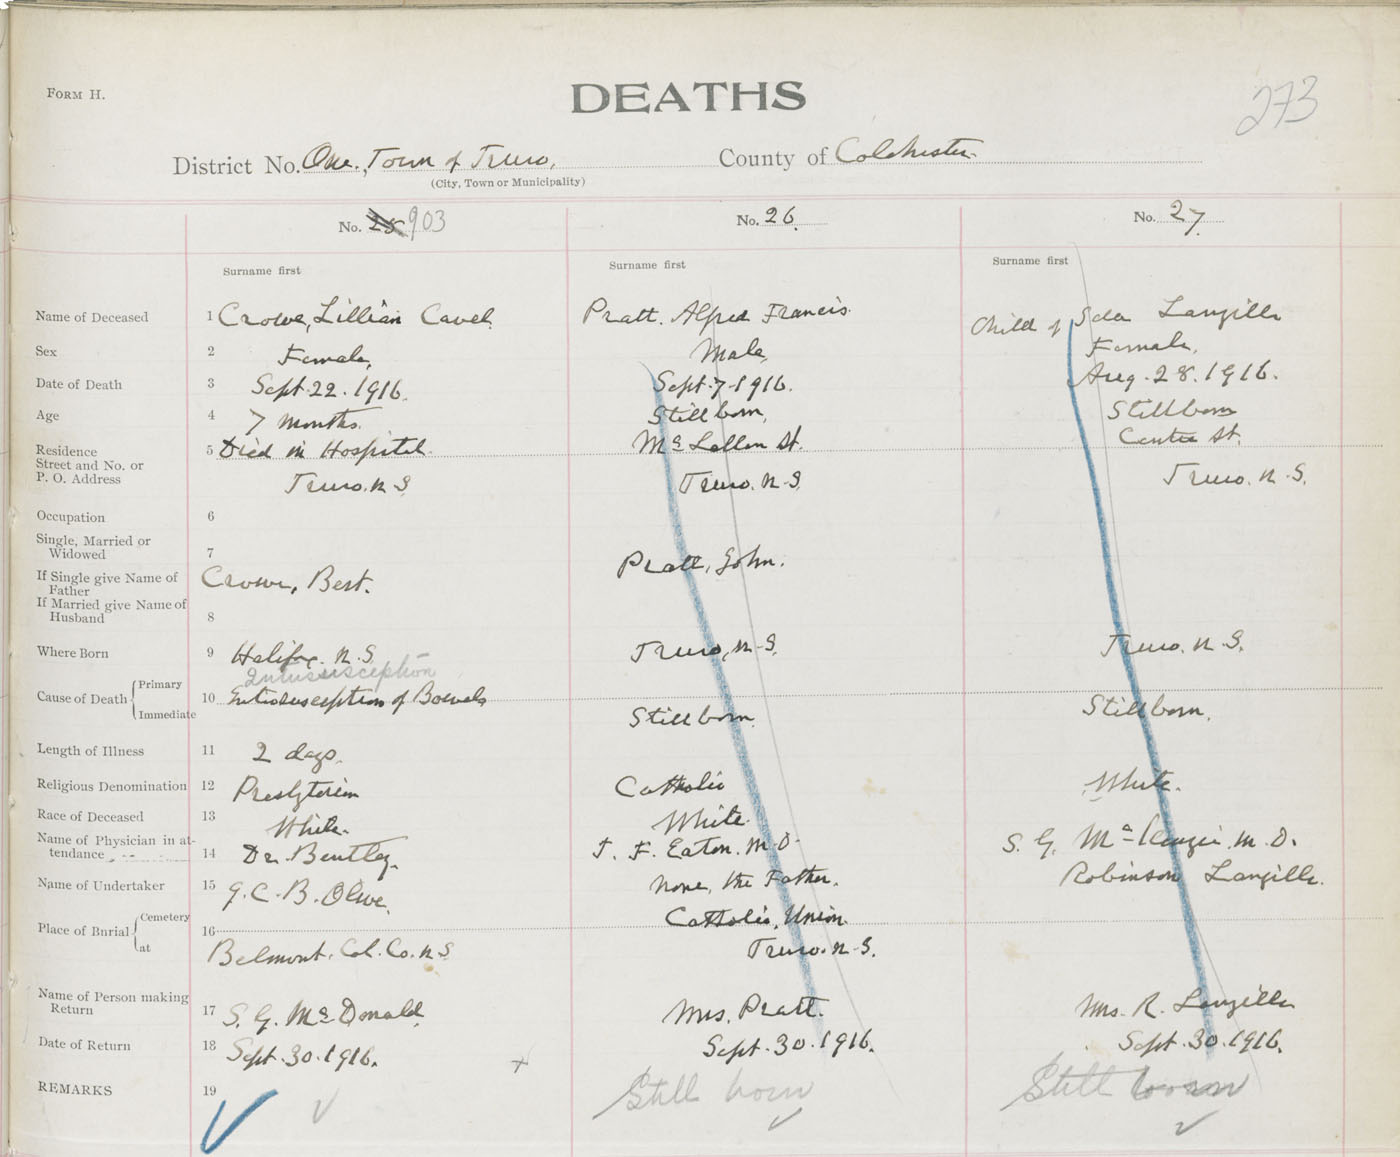 FORM H.
DEATHS
273
District No. One, Town of Truro, County of Colchester
(City, Town or Municipality)
No. 25 903
No. 26.
No. 27.
Surname first
Surname first
Surname first
Name of Deceased 1 Crowe, Lillian Cavel Pratt. Alfred Francis. Child of Langille
Sex 2 Female, Male, Female,
Date of Death 3 Sept. 22. 1916. Sept. 7. 1916. Aug. 28. 1916.
Age 4 7 months. Still born, Still born
Residence 5 Died in Hospital. McLellan St. Centre St.
Street and No. or
P. O. Address Truro. N. S. Truro. N. S. Truro. N. S.
Occupation 6
Single, Married or
Widowed 7
If Single give Name of
Father Crowe, Bert. Pratt, John.
If Married give Name of
Husband 8
Where Born 9 Halifax. N. S. Truro, N. S. Truro. N. S.
Intussisception
Cause of Death Primary
10 Intiosusception of Bowels
Immediate Still born, Still born.
Length of Illness 11 2 days.
Religious Denomination 12 Presbyterian Catholic White.
Race of Deceased 13 White. White.
Name of Physician in at-
tendance 14 Dr. Bentley. F. Eaton. M. D. S. G. McKenzie. M. D.
Name of Undertaker 15 G. C. B. Olive. None, the Father. Robinson Langille.
Place of Burial Cemetery
16 Catholic, Union
at Belmont. Col. Co. N. S. Truro. N. S.
Name of Person making
Return 17 S. G. McDonald, Mrs. Pratt. Mrs. R. Langille
Date of Return 18 Sept. 30. 1916. Sept. 30. 1916. Sept. 30. 1916.
REMARKS 19 Still born Still born